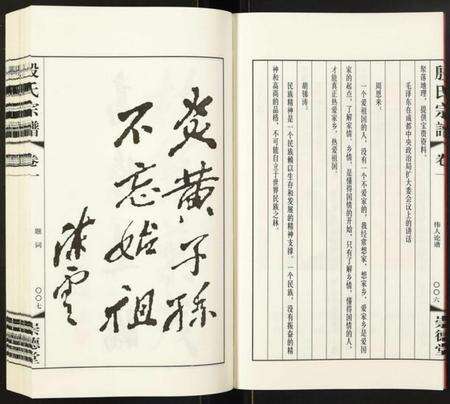 殷氏宗譜
卷一
伟人论谱
〇〇六
崇德堂
聚落地理，提供宝贵资料。
毛泽东在成都中央政治局扩大委会议上的讲话
周恩来：
一个爱祖国的人，没有一个不爱家的。我经常想家、想家乡，爱家乡是爱国
家的起点，了解家情、乡情，是懂得国情的开始，只有了解乡情，懂得国情的人，
才能真正热爱家乡、热爱祖国。
胡锦涛：
民族精神是一个民族赖以生存和发展的精神支撑，一个民族，没有振奋的精
神和高尚的品格，不可能自立于世界民族之林。
炎黄子孙
不忘始祖
陈云
殷氏宗譜
卷一
题词
〇〇七
崇德堂